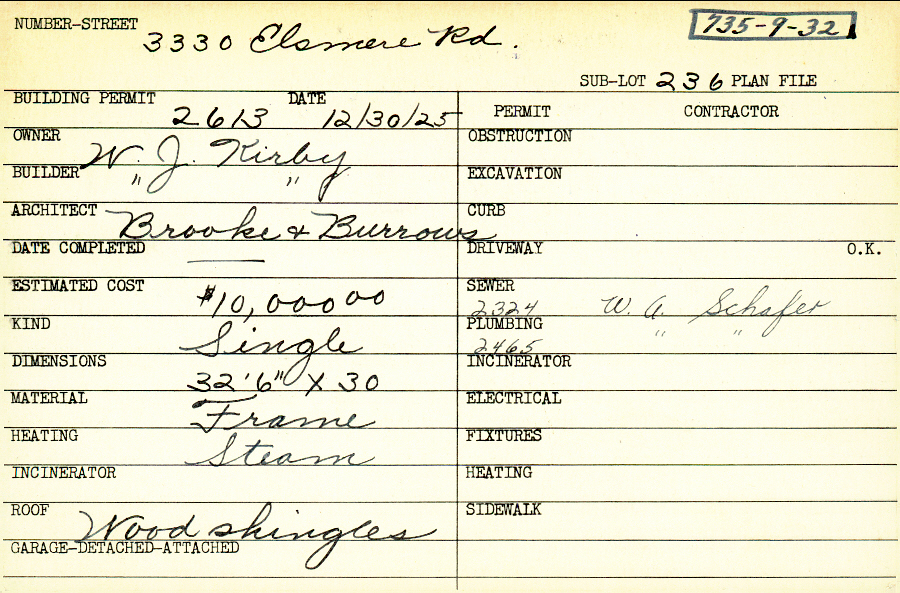 NUMBER-STREET 3330 Elsmere Rd. 735-9-32
SUB-LOT 236 PLAN FILE
BUILDING PERMIT 2613 DATE 12/30/25
PERMIT CONTRACTOR
OWNER W. J. Kirby
OBSTRUCTION
BUILDER " "
EXCAVATION
ARCHITECT Brooke & Burrows
CURB
DATE COMPLETED ——
DRIVEWAY O.K.
ESTIMATED COST $10,000 00
SEWER 2324 W. A. Schafer
KIND Single
PLUMBING 2465 " "
DIMENSIONS 32'6" X 30
INCINERATOR
MATERIAL Frame
ELECTRICAL
HEATING Steam
FIXTURES
INCINERATOR
HEATING
ROOF Wood shingles
SIDEWALK
GARAGE-DETACHED-ATTACHED